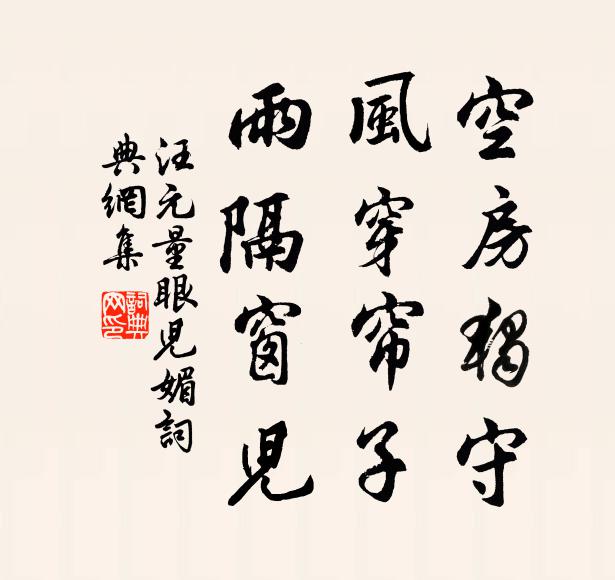 空房獨守
風穿帘子
雨隔窗兒
汪元量眼兒媚詞
典網集
詞典网印